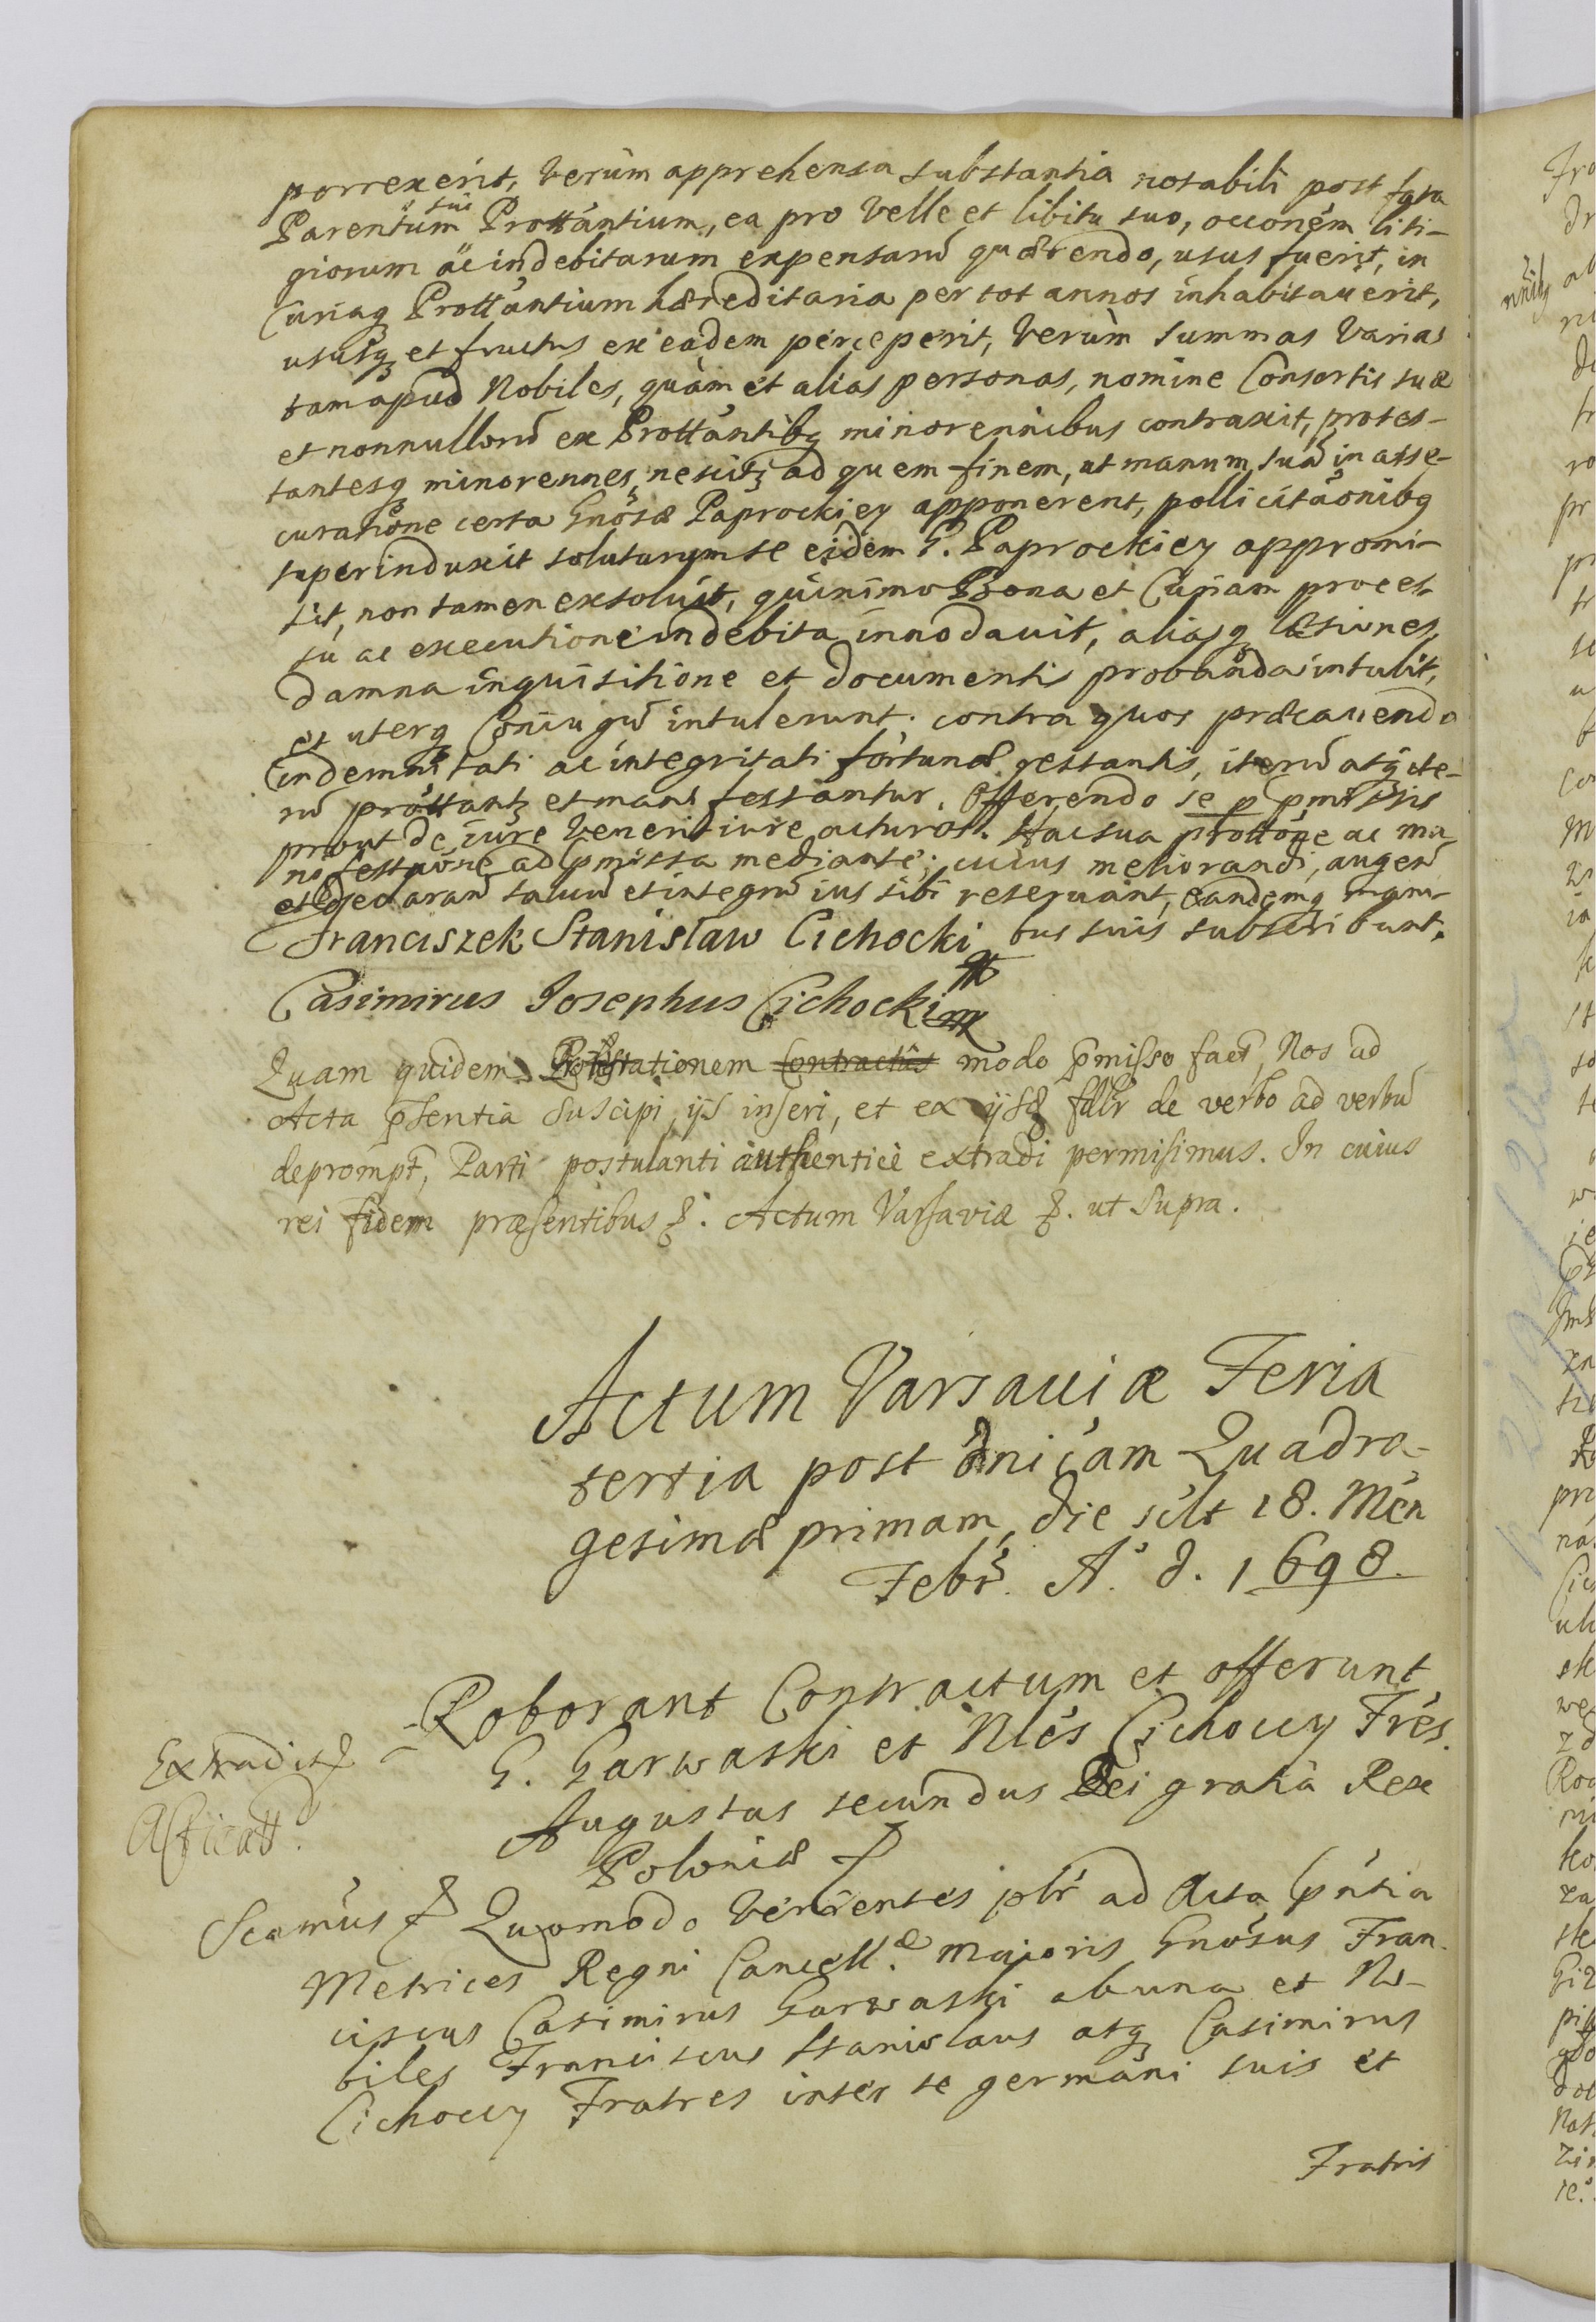 porrexerit, verùm apprehensa substantia notabili post fata
Parentum suor Prottantium, ea pro velle et libitu suo, occoném liti-
giorum ac indebitarum expensarũ quærendo, usus fuerit, in
Curiaq Prottantium hæreditaria per tot annos inhabitauerit,
ususq et fructus ex eadem perceperit, verùm summas varias
tam apud Nobiles, quàm et alias personas, nomine Consortis suæ
et nonnullorũ ex Prottantibq minorennibus contraxit, protes-
tantesq minorennes, nescitq ad quem finem, ut manum suã in asse-
curatione certa Gnosæ Paprockiey apponerent, pollicitaonibq
superinduxit soluturum se eidem G. Paprockiey appromi-
sit, non tamen exsoluit, quinimo Bona et Curiam proces-
su ac executione indebita innodauit, aliasq læsiones,
damna inquisitione et documentis probanda intulit,
et uterq Coniugũ intulerunt. contra quos præcauendo
indemnitati ac integritati fortunæ gestantis, iterũ atq ite-
rũ prottantq et manifestantur. Offerendo se p pmissis
prout de iure venerit iure acturos. Hac sua prottone ac ma-
nifestaone ad pmissa mediante; cuius meliorandi, augen
et declaran saluũ et integrũ ius sibi reseruant, eandemq mani-
bus suis subscribunt.
Franciszek Stanisław Cichocki mp
Casimirus Josephus Cichocki mp
Quam quidem Protestationem Contractus modo pmisso fact, Nos ad
Acta psentia suscipi, ijs inseri, et ex ijsd fdlr de verbo ad verbũ
deprompt, Parti postulanti authenticè extradi permisimus. In cuius
rei fidem præsentibus &. Actum Varsaviæ &. ut supra.
Actum Varsauiæ Feria
tertia post dnicam Quadra-
gesimæ primam, die scilt 18. Men
Febr. A. d. 1698.
Roborant Contractum et offerunt
G. Garwaski et Nles Cichoccy Fres.
Extradit
Augustus secundus Dei gratià Rex
Poloniæ &
Scamus & Quomodo venientes plr ad Acta pntia
Metrices Regni Cancell. æ Majoris Gnosus Fran-
ciscus Casimirus Garwaski abuna et No-
biles Franciscus Stanislaus atq Casimirus
Cichoccy Fratres inter se germani suis et
Fratris